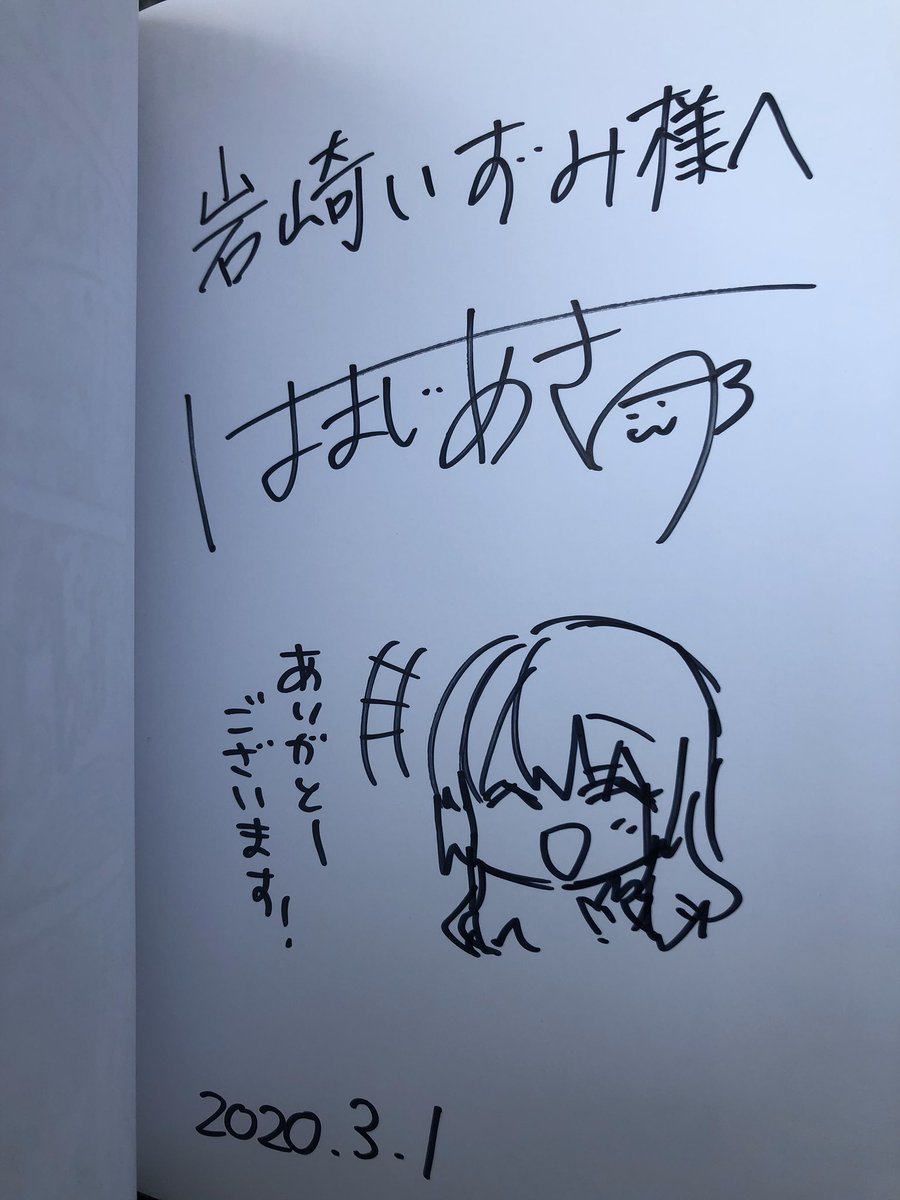 岩崎いずみ様へ
はまじあき
ありがとー
ございます!
2020.3.1